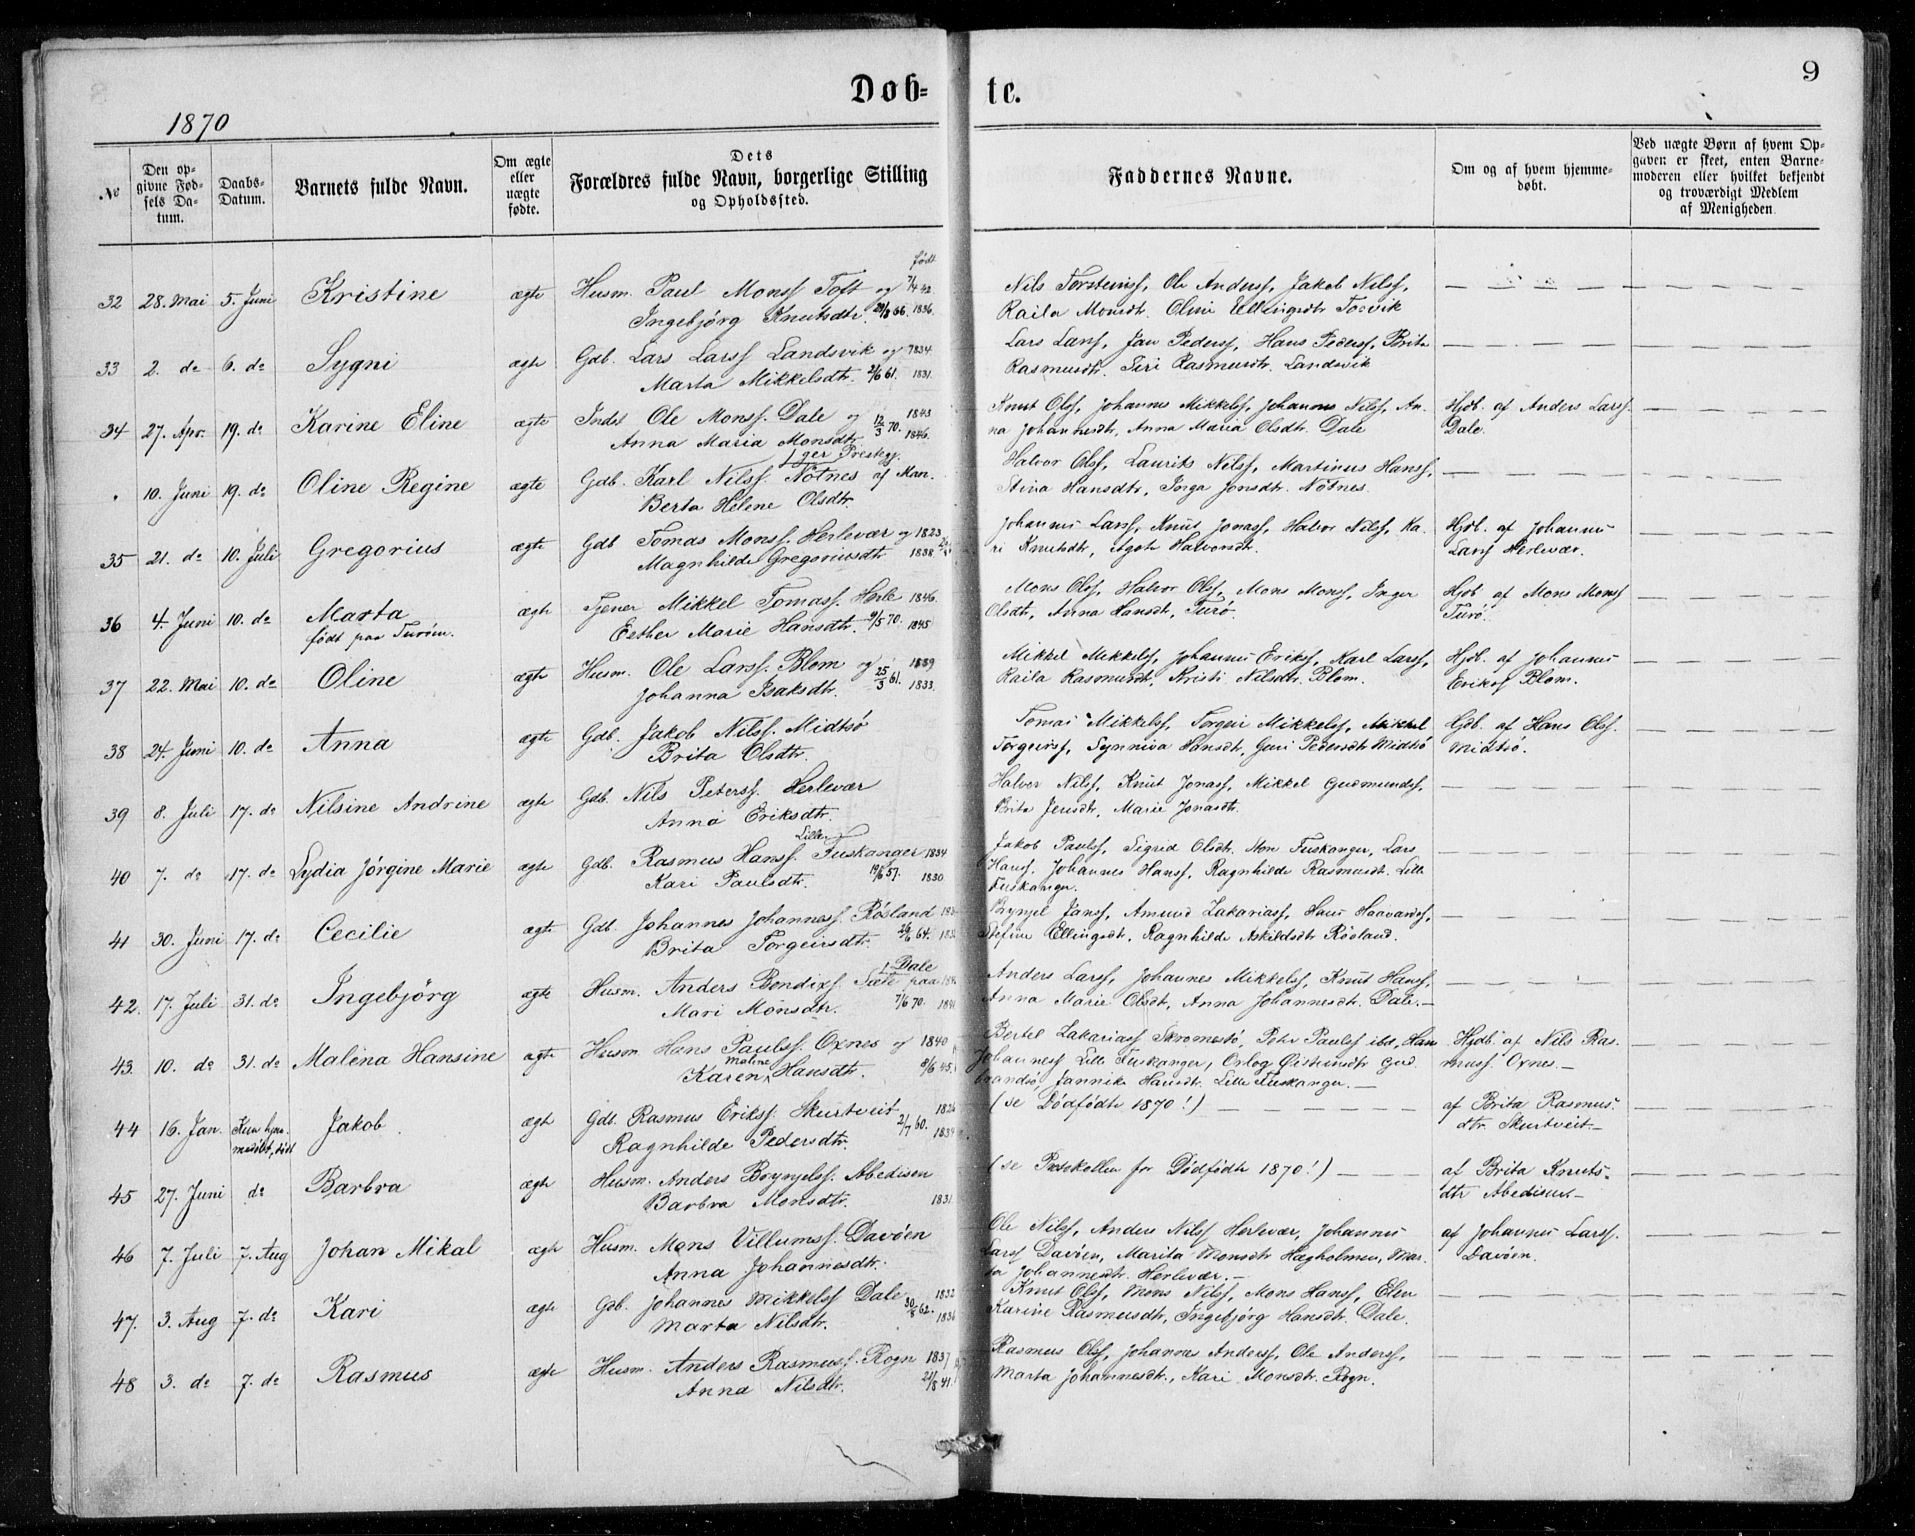 Døb-
te.
9
1870
№
Den op-
givne Fød-
sels Da-
tum.
Daabs-
Datum.
Barnets fulde Navn.
Om ægte
eller
uægte
fødte.
Dets
Forældres fulde Navn, borgerlige Stilling
og Opholdssted.
Faddernes Navne.
Om og af hvem hjemme-
døbt.
Ved uægte Børn af hvem Op-
gaven er skeet, enten Barne-
moderen eller hvilket bekjendt
og troværdigt Medlem
af Menigheden.
født
32 28. Mai 5. Juni Kristine ægte Husm. Paul Monss Toft og 7/4 42.
Ingebjörg Knutsdtr. 1836.
Nils Torsteinss, Ole Anderss, Jakob Nilss,
Raila Monsdtr. Oline Ellingsdtr Tosvik
33 2. do 6. do Sygni ægte Gdb. Lars Larss Landsvik og 1834.
Marta Mikkelsdtr. 2/6 61. 1831.
Lars Larss, Jan Pederss, Hans Pederss, Brita
Rasmusdtr. Siri Rasmusdtr. Landsvik
34 27. Apr. 19. do Karine Eline ægte Inds. Ole Monss. Dale og 12/3 70. 1843
Anna Maria Monsdtr 1846.
Knut Olss, Johannes Mikkelss, Johannes Nilss, An-
na Johannesdtr, Anna Maria Olsdtr. Dale
Hjdb. af Anders Larss.
Dale.
ger Prestegj.
10. Juni 19. do Oline Regine ægte Gdb. Karl Nilss. Nötnes af Man.
Berta Helene Olsdtr.
Halvor Olss, Laurits Nilss, Martinus Hanss,
Stina Hansdtr, Inga Jonsdtr. Nötnes.
35 21. do 10. Juli Gregorius ægte Gdb Tomas Monss. Herlevær og 1823
Magnhilde Gregoriusdtr. 1838.
Johannes Larss, Knut Jonass, Halvor Nilss, Ka-
ri Knutsdtr, Agate Halvorsdtr.
Hjdb. af Johannes
Larss Herlevær.
36 4. Juni 10. do Marta ægte Tjener Mikkel Tomass. Herle 1846.
født paa Turöen. Esther Marie Hansdtr. 9/5 70. 1845
Mons Olss, Halvor Olss, Mons Monss, Inger
Olsdtr, Anna Hansdtr, Turø.
Hjdb af Mons Monss
Turö.
37 22. Mai 10. do Oline ægte Husm. Ole Larss. Blom og 25/3 61. 1839
Johanna Isaksdtr. 1833.
Mikkel Mikkelss, Johannes Erikss, Karl Larss,
Raila Rasmusdtr, Kristi Nilsdtr. Blom.
Hjdb. af Johannes
Erikss Blom.
38 24. Juni 10. do Anna ægte Gdb. Jakob Nilss. Midtsö
Brita Olsdtr.
Tomas Mikkelss, Torgeir Mikkelss, Mikkel
Torgeirss, Synniva Hansdtr, Guri Pedersdtr Midtsö
Gdb. af Hans Olss.
Midtsö.
39 8. Juli 17. do Nilsine Andrine ægte Gdb. Nils Peterss. Herlevær
Anna Eriksdtr.
Halvor Nilss, Knut Jonass, Mikkel Gudmundss,
Brita Jensdtr, Marie Jonasdtr.
Lille
40 7. do 17. do Lydia Jörgine Marie ægte Gdb. Rasmus Hanss. Fuskanger 1834
Kari Paulsdtr. 19/6 57. 1830
Jakob Paulss, Sigrid Olsdtr. Fuskanger, Lars
Hanss, Johannes Hanss, Ragnhilde Rasmusdtr. Lille
Fuskanger.
41 30. Juni 17. do Cecilie ægte Gdb. Johannes Johanness. Rösland
Brita Torgeirsdtr. 26/6 64.
Brynjel Janss, Amund Zakariass, Hans Haavardss,
Stefine Ellingsdtr, Ragnhilde Askildsdtr Rösland.
Dale
42. 17. Juli 31. do Ingebjörg ægte Husm. Anders Bendixs. Sæte paa
Mari Monsdtr. 7/6 70.
Anders Larss, Johannes Mikkelss, Knut Hanss,
Anna Marie Olsdtr, Anna Johannesdtr. Dale.
43. 10. do 31. do Malena Hansine ægte Husm Hans Paulss. Oxnes og 1840
Karen Maline Hansdtr. 8/6 45.
Bertel Zakariass Skromesö, Petr Paulss ibd, Han
Johanness Lille Fuskanger, Orlog Öisteinsdtr Gul
brandsö, Jannike Hansdtr. Lille Fuskanger.
Hjdb. af Nils Ras-
muss. Oxnes.
44 16. Jan. Kun hjem-
medöbt, död Jakob ægte Gdb. Rasmus Erikss. Skurtveit 2/7 60. 1826
Ragnhilde Pedersdtr. 1834
(se Dödfödte 1870!)
af Brita Rasmus-
dtr. Skurtveit.
45 27. Juni do Barbra ægte Husm. Anders Brynjelss. Abedisen
Barbra Monsdtr. 1831.
(se Protokollen for Dödfödte 1870!)
af Brita Knuts-
dtr Abedisen
46 7. Juli 7. Aug Johan Mikal ægte Husm. Mons Villumss. Davöen
Anna Johannesdtr.
Ole Nilss, Anders Nilss Herlevær, Johannes
Larss Davöen, Marita Monsdtr Hægholmen, Mar-
ta Johannesdtr. Herlevær.
af Johannes Larss.
Davöen.
47. 3. Aug 7. do Kari ægte Gdb. Johannes Mikkelss Dale 1832
Marta Nilsdtr. 30/8 62. 1836
Knut Olss, Mons Nilss, Mons Hanss, Elen
Karine Rasmusdtr, Ingebjörg Hansdtr. Dale.
48 3. do 7. do Rasmus ægte Husm. Anders Rasmuss. Rogn 1837
Anna Nilsdtr. 21/8 41.
Rasmus Olss, Johannes Anderss, Ole Anderss,
Marta Johannesdtr., Kari Monsdtr. Rogn.